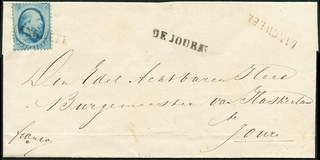 DE JOURE
LANGWEER
Den Edel Achtbaren Heer
Burgemeester van Haskerland
te
Joure
franco